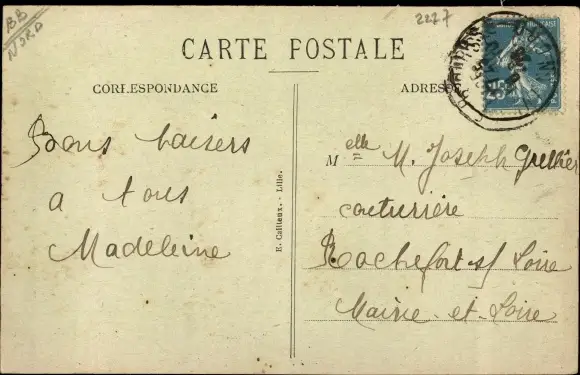 BB
NORD
2227
CARTE POSTALE
CORRESPONDANCE
ADRESSE
Bons baisers
a tous
Madeleine
E. Cailteux. - Lille.
Melle M. Joseph Grellier
couturrière
Rochefort s/ Loire
Maine et Loire
25